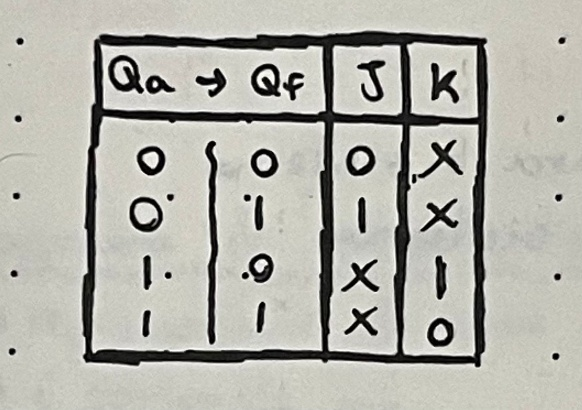 Qa → Qf J K
0 0 0 X
0 1 1 X
1 0 X 1
1 1 X 0